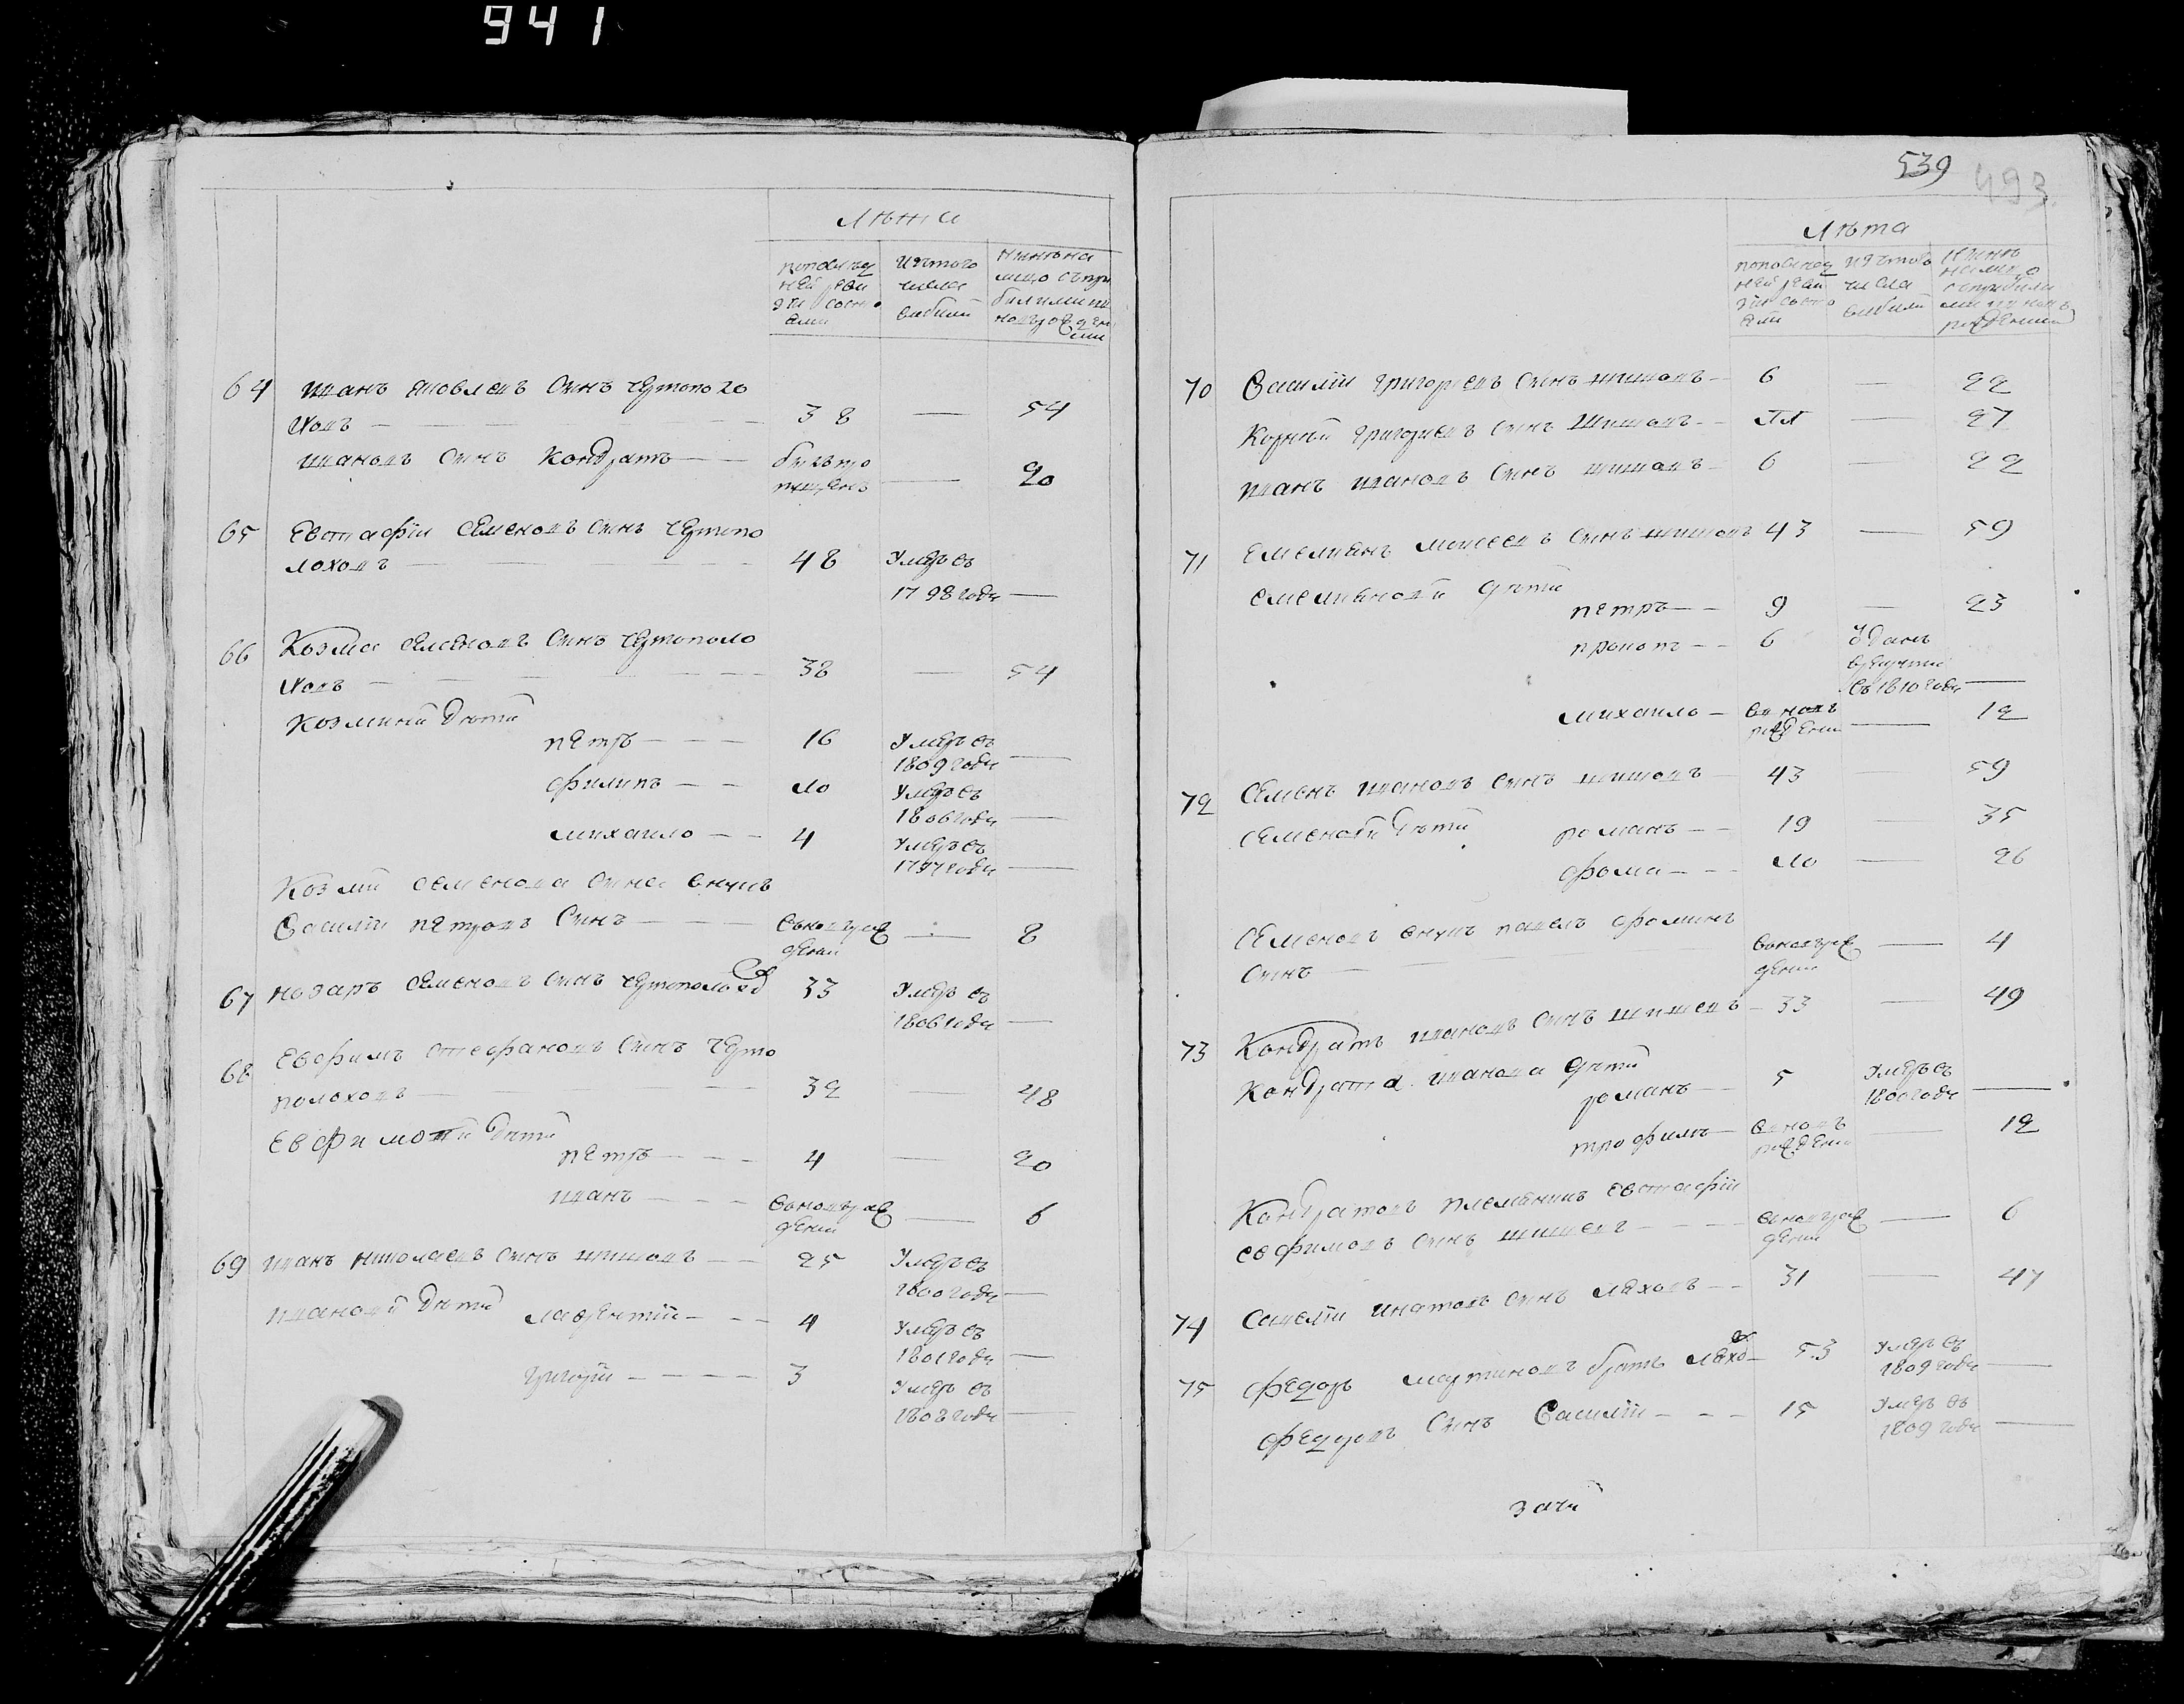 941
Лѣта
по последней ревизіи состояли
Изъ того числа выбыли
Нынѣ на лицо съ прибылыми и новорожденными
64 Иванъ Яковлевъ сынъ Чертополо
ховъ 38 — 54
Ивановъ сынъ Кондратъ былъ про
пущенъ — 20
65 Евстафій Семеновъ сынъ Чертопо
лоховъ 48 Умеръ въ
1798 годе —
66 Козма Семеновъ сынъ Чертополо
ховъ 38 — 54
Козмины дѣти
Петръ 16 Умеръ въ
1809 годе —
Филипъ 10 Умеръ въ
1806 годе —
Михаило 4 Умеръ въ
1797 годе —
Козмы Семенова сына внукъ
Василій Петровъ сынъ вновьрож
дены — 8
67 Назаръ Семеновъ сынъ Чертополохов 33 Умеръ въ
1806 годе —
68 Евфимъ Стефановъ сынъ Черто
полоховъ 32 — 48
Евфимовы дѣти
Петръ 4 — 20
Иванъ вновьрож
дены — 6
69 Иванъ Николаевъ сынъ Шишовъ 25 Умеръ въ
1800 годе —
Ивановы дѣти Лаврентій 4 Умеръ въ
1801 годе —
Григорій 3 Умеръ въ
1808 годе —
539
493
Лѣта
по последней ревизіи состояли
Изъ того числа выбыли
Нынѣ на лицо с прибылыми и вновь рожденными
70 Василій Григорьевъ сынъ Шишовъ 6 — 22
Корнѣй Григорьевъ сынъ Шишовъ 11 — 27
Иванъ Ивановъ сынъ Шишовъ 6 — 22
71 Емельянъ Моисеевъ сынъ Шишовъ 43 — 59
Емельяновы дѣти
Петръ 9 — 23
Прокопъ 6 Зданъ
в рекруты
въ 1810 годе —
Михаило вновь
рождены — 12
72 Семенъ Ивановъ сынъ Шишовъ 43 — 59
Семеновы дѣти Романъ 19 — 35
Фома 10 — 26
Семеновъ внукъ Павелъ Фоминъ
сынъ вновьрож
дены — 4
73 Кондратъ Ивановъ сынъ Шишовъ 33 — 49
Кондрата Иванова дѣти
Романъ 5 Умеръ въ
1800 годе —
Трофимъ вновь
рождены — 12
Кондратовъ племянникъ Евстафій
Евфимовъ сынъ Шишовъ вновьрож
дены — 6
74 Савелій Игнатовъ сынъ Ляховъ 31 — 47
75 Федоръ Мартиновъ братъ Ляхов 53 Умеръ въ
1809 годе —
Федоровъ сынъ Василій 15 Умеръ въ
1809 годе —